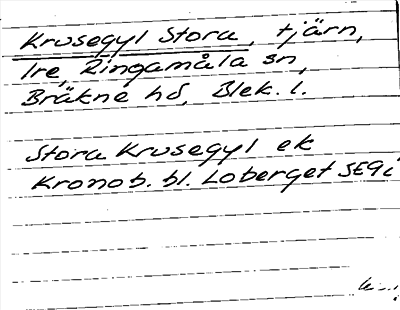 Krusegyl Stora, tjärn,
Ire, Ringamåla sn,
Bräkne hd, Blek. l.
Stora Krusegyl ek
Kronob. bl. Loberget SE9i